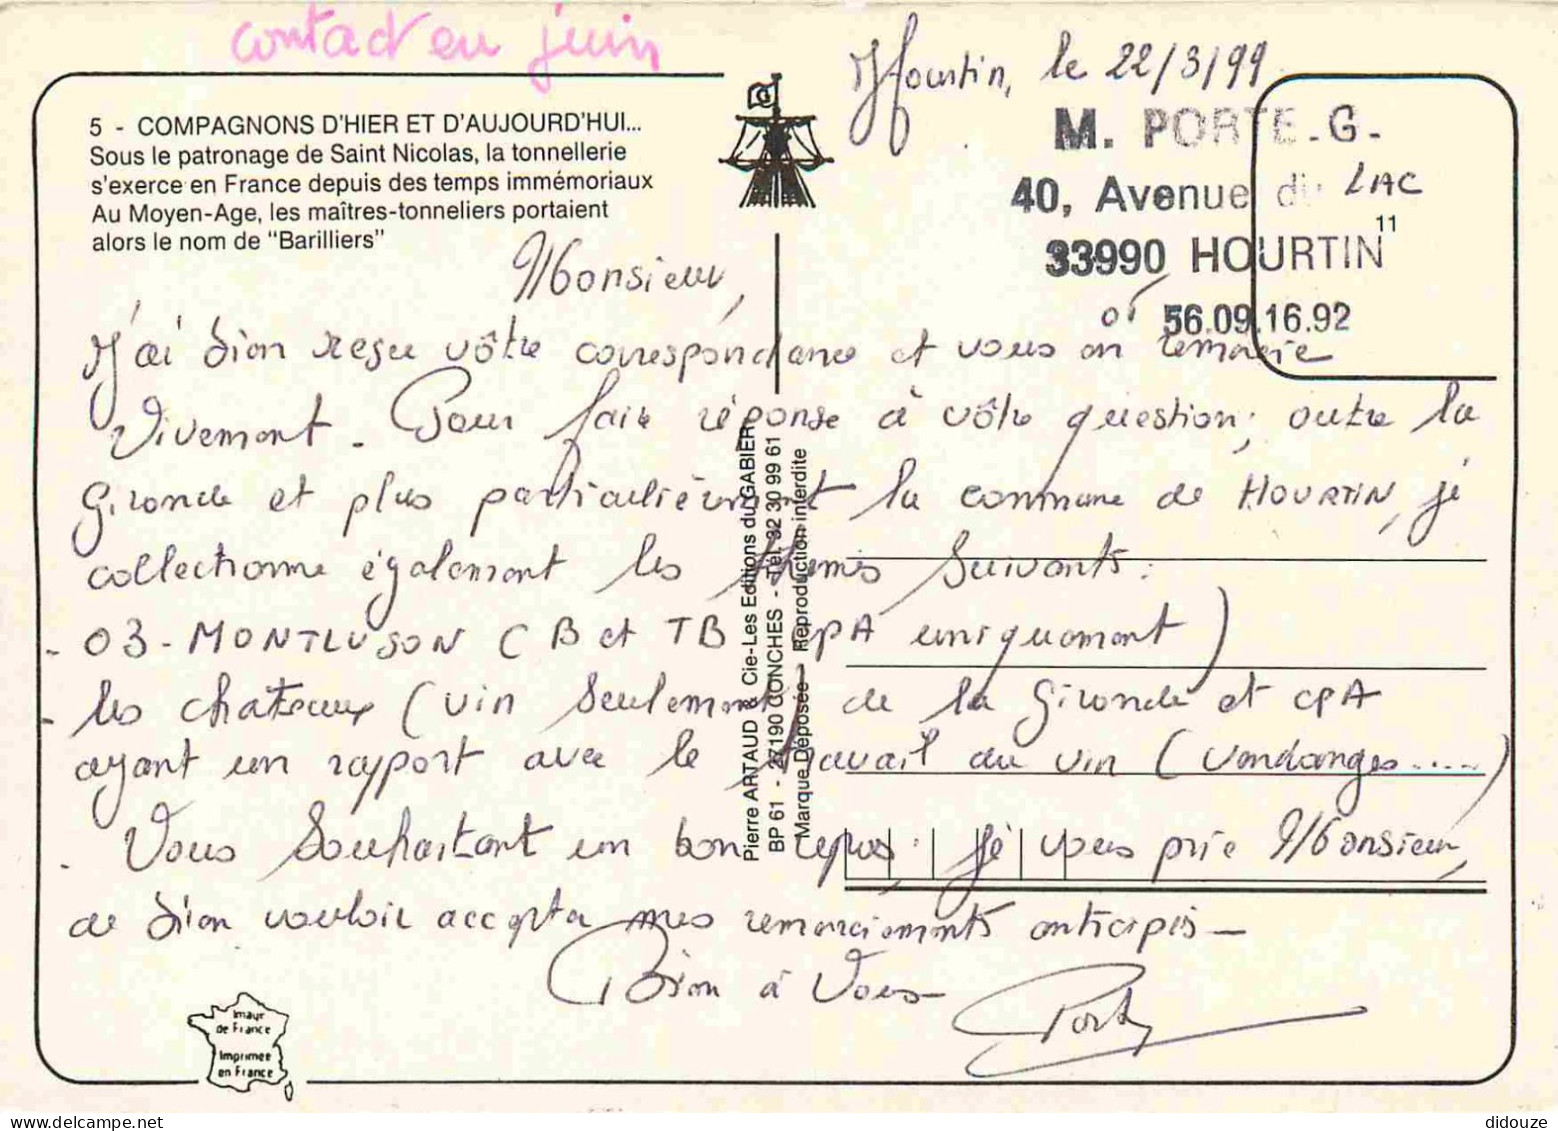 contact en juin
Hourtin, le 22/3/99
5 - COMPAGNONS D'HIER ET D'AUJOURD'HUI...
Sous le patronage de Saint Nicolas, la tonnellerie
s'exerce en France depuis des temps immémoriaux
Au Moyen-Age, les maîtres-tonneliers portaient
alors le nom de "Barilliers"
M. PORTE - G -
40, Avenue du LAC
11
33990 HOURTIN
56.09.16.92
Monsieur,
J'ai bien reçu vôtre correspondance et vous en remercie
Vivement. Pour faire réponse à vôtre question; outre la
Gironde et plus particulièrement la commune de HOURTIN, je
collectionne également les thèmes suivants:
- 03 - MONTLUSON (B et TB CPA uniquement)
- les chateaux (vin seulement) de la Gironde et CPA
ayant un rapport avec le travail du vin (vendanges.....)
Vous souhaitant un bon repas; je vous prie Monsieur,
de bien vouloir accepter mes remerciements anticipés -
Bien à Vous
Porte
Pierre ARTAUD & Cie-Les Editions du GABIER
BP 61 - 27190 CONCHES - Tél. 32 30 99 61
Marque Déposée - Reproduction interdite
Image
de France
Imprimée
en France
didouze